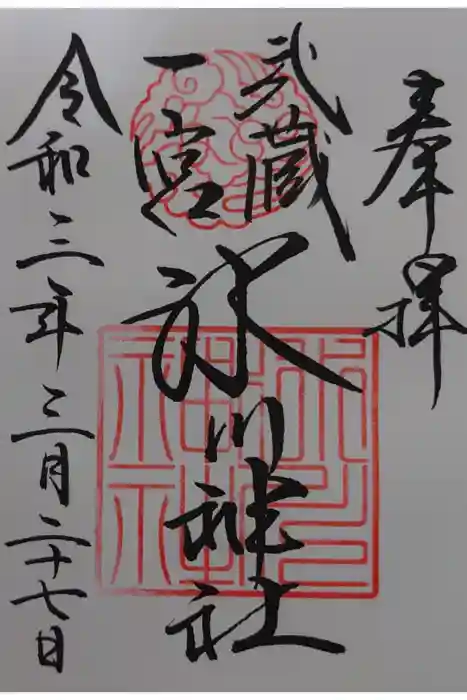 奉拝
武蔵
一宮
氷川神社
令和三年三月二十七日
氷川
神社